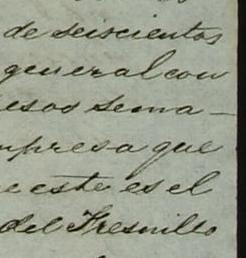 de seiscientos
general con
esos sema-
mpresa que
e este es el
del Fresnillo